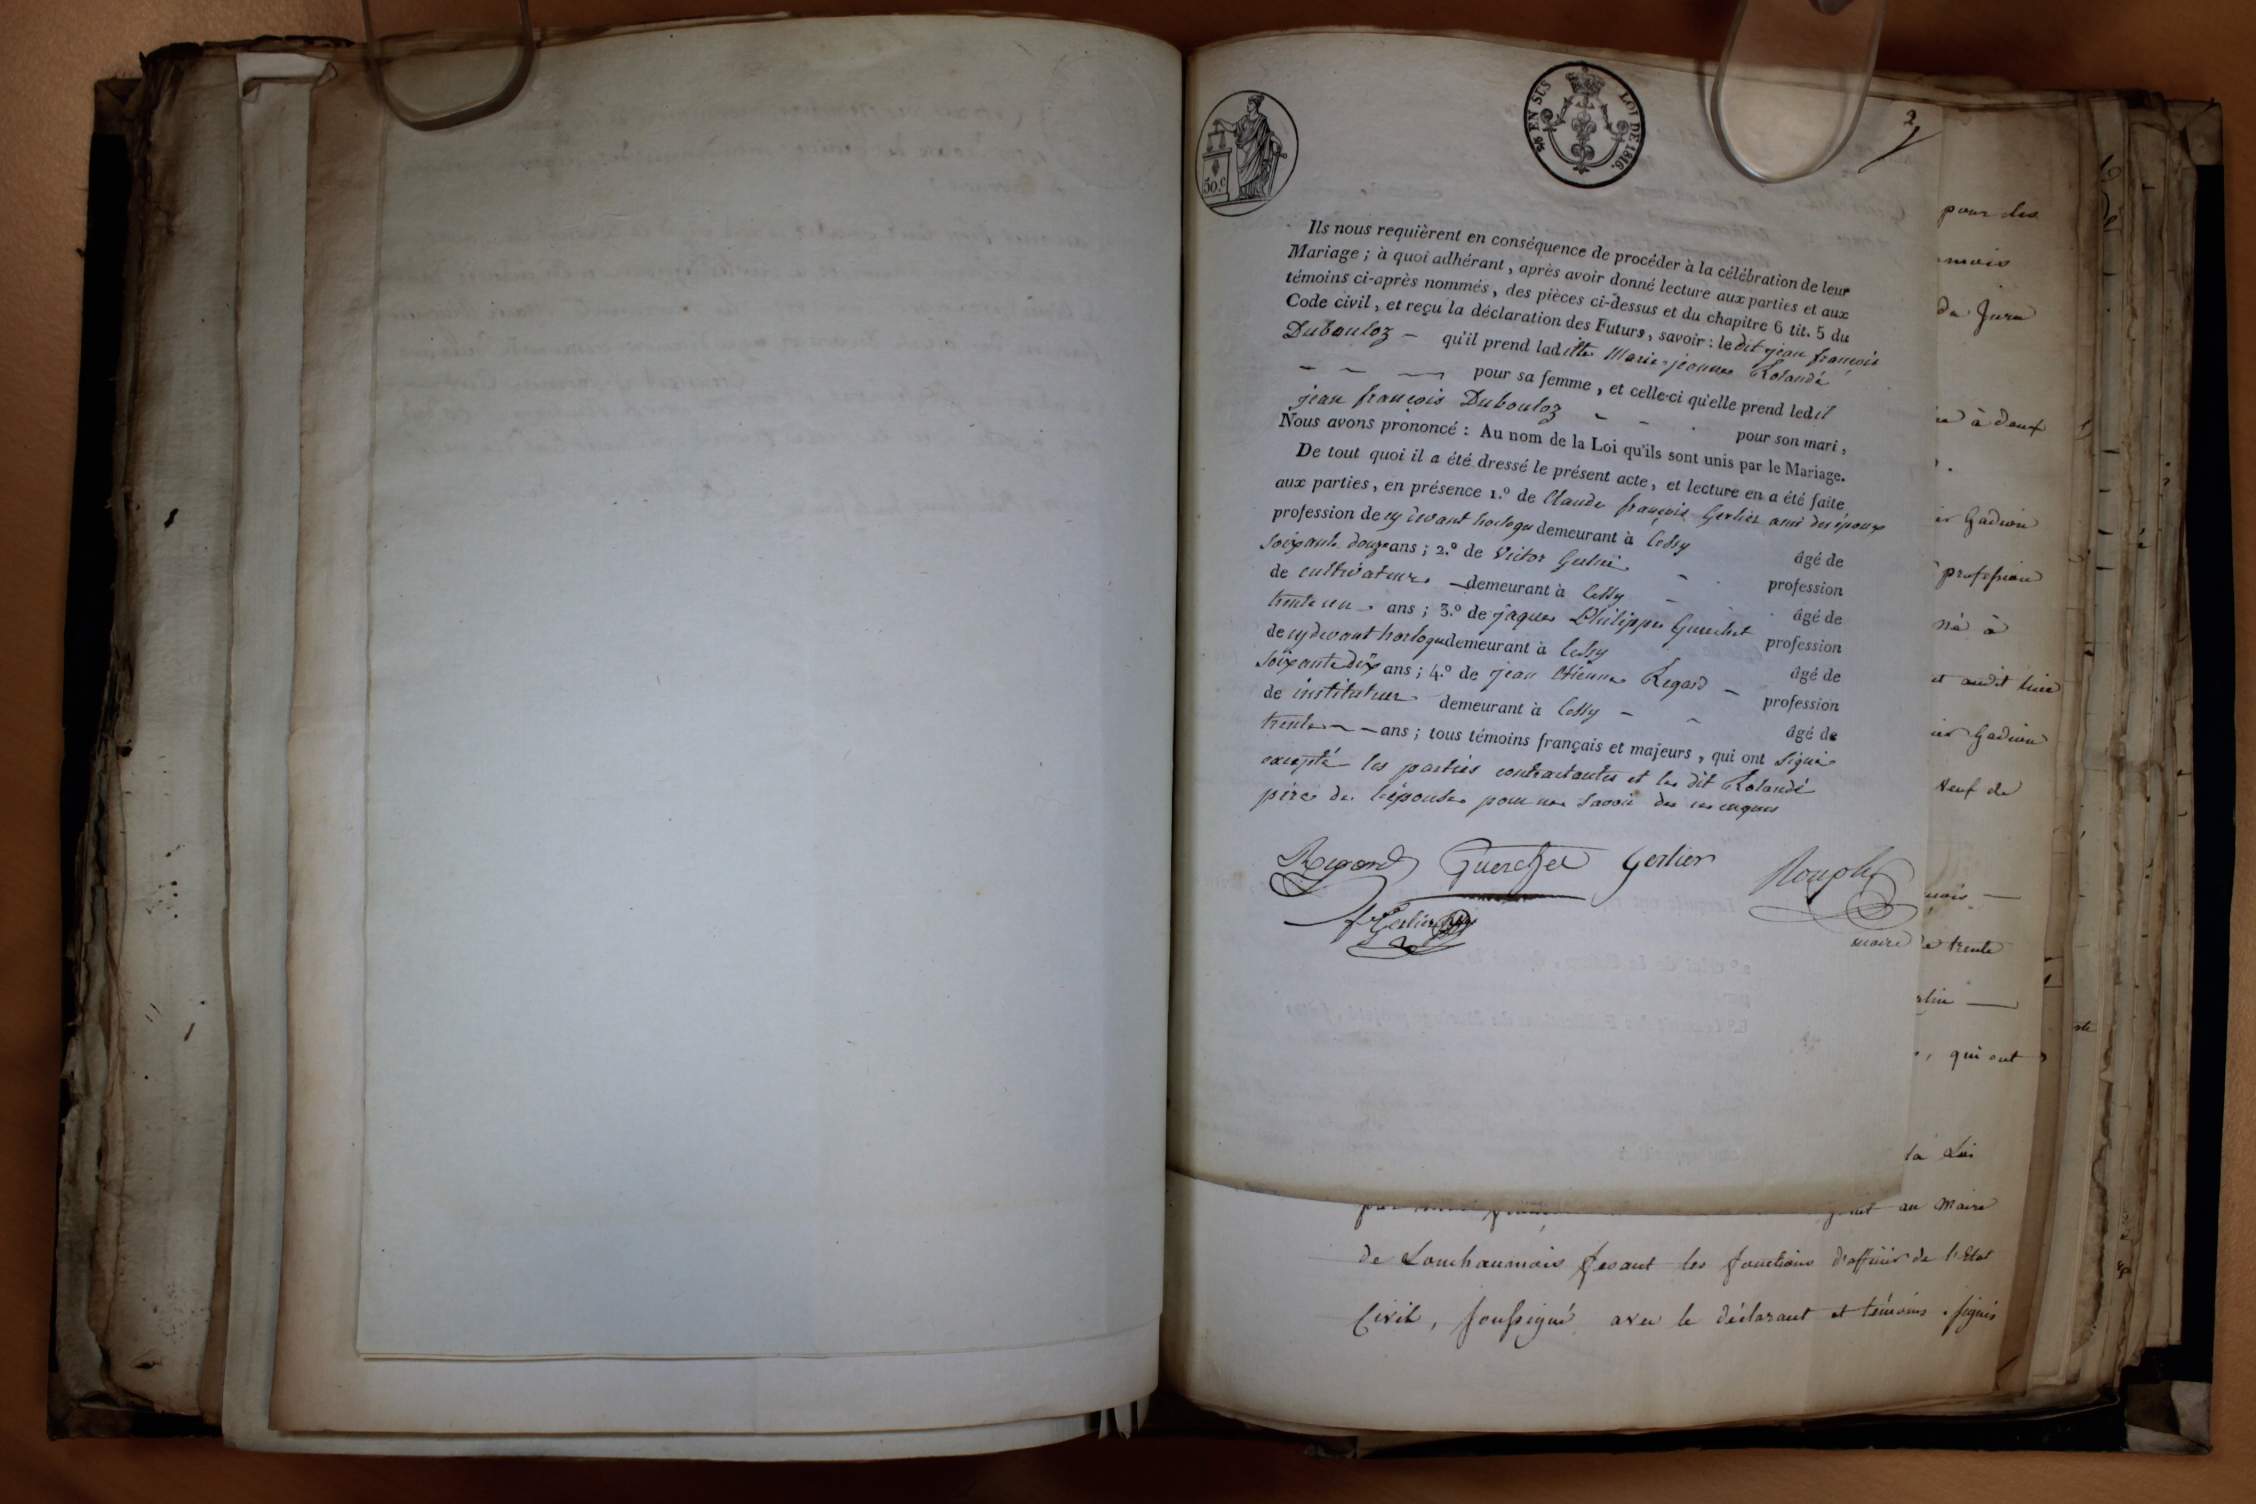 30.c
EN SUS LOI DE 1816.
2
Ils nous requièrent en conséquence de procéder à la célébration de leur
Mariage ; à quoi adhérant, après avoir donné lecture aux parties et aux
témoins ci-après nommés, des pièces ci-dessus et du chapitre 6 tit. 5 du
Code civil, et reçu la déclaration des Futurs, savoir : le dit jean françois
Dubouloz – qu'il prend laditte Marie-jeanne Rolandé
pour sa femme, et celle-ci qu'elle prend ledit
jean françois Dubouloz pour son mari,
Nous avons prononcé : Au nom de la Loi qu'ils sont unis par le Mariage.
De tout quoi il a été dressé le présent acte, et lecture en a été faite
aux parties, en présence 1.º de Claude françois Gerlier ami des époux
profession de cy devant horloger demeurant à Cessy âgé de
soixante douze ans ; 2.º de Victor Gerlier profession
de cultivateur – demeurant à Cessy âgé de
trente un ans ; 3.º de jaques Philippe Guerchet profession
de cy devant horloger demeurant à Cessy âgé de
soixante dix ans ; 4.º de jean Etienne Regard – profession
de instituteur demeurant à Cessy – âgé de
trente – – ans ; tous témoins français et majeurs, qui ont signé
excepté les parties contractantes et le dit Rolandé
père de l'épouse pour ne savoir de ce enquis
Regard Guerchet Gerlier
Gerlier
maire
pour les
da Jura
à deux
Gadion
profession
né à
et audit lieu
Gadion
neuf de
trente
, qui ont
la Loi
au Maire
de Lonchaumois fesant les fonctions d'officier de l'Etat
Civil, soussigné avec le déclarant et témoins. signés